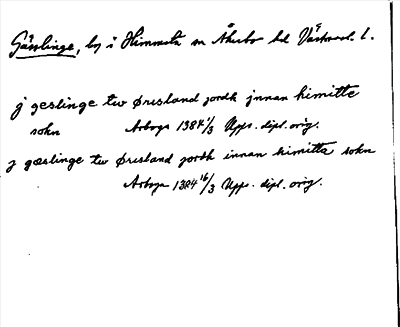 Gässlinge, by i Himmeta sn Åkerbo hd Västmanl. l.
j geslinge tw ørisland jordh jnnan himitte
sokn Arboga 1384 1/3 Upps. dipl. orig.
j gæslinge tw ørisland jordh innan himitte sokn
Arboga 1384 16/3 Upps. dipl. orig.